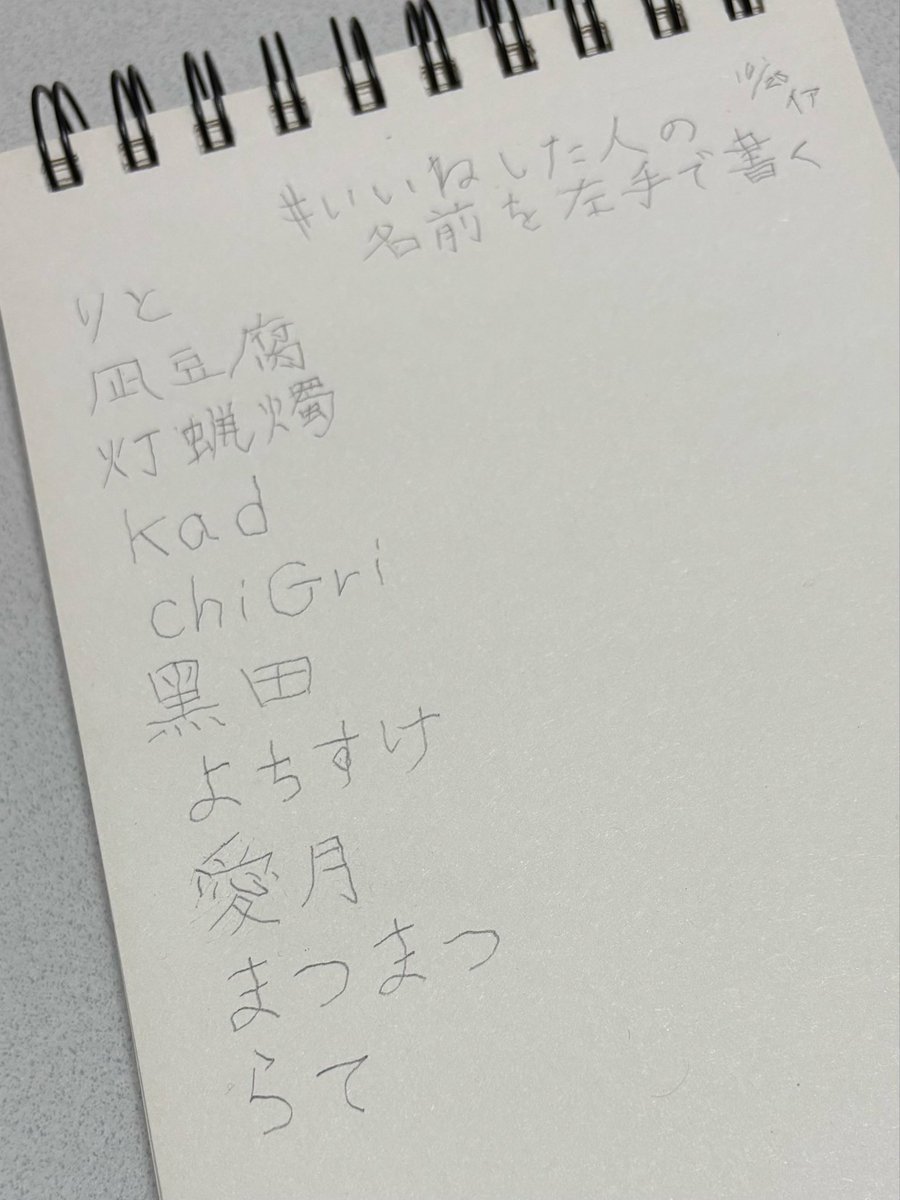 10/25
イア
#いいねした人の
名前を左手で書く
りと
凪豆腐
灯蝋燭
kad
chiGri
黒田
よちすけ
愛月
まつまつ
らて